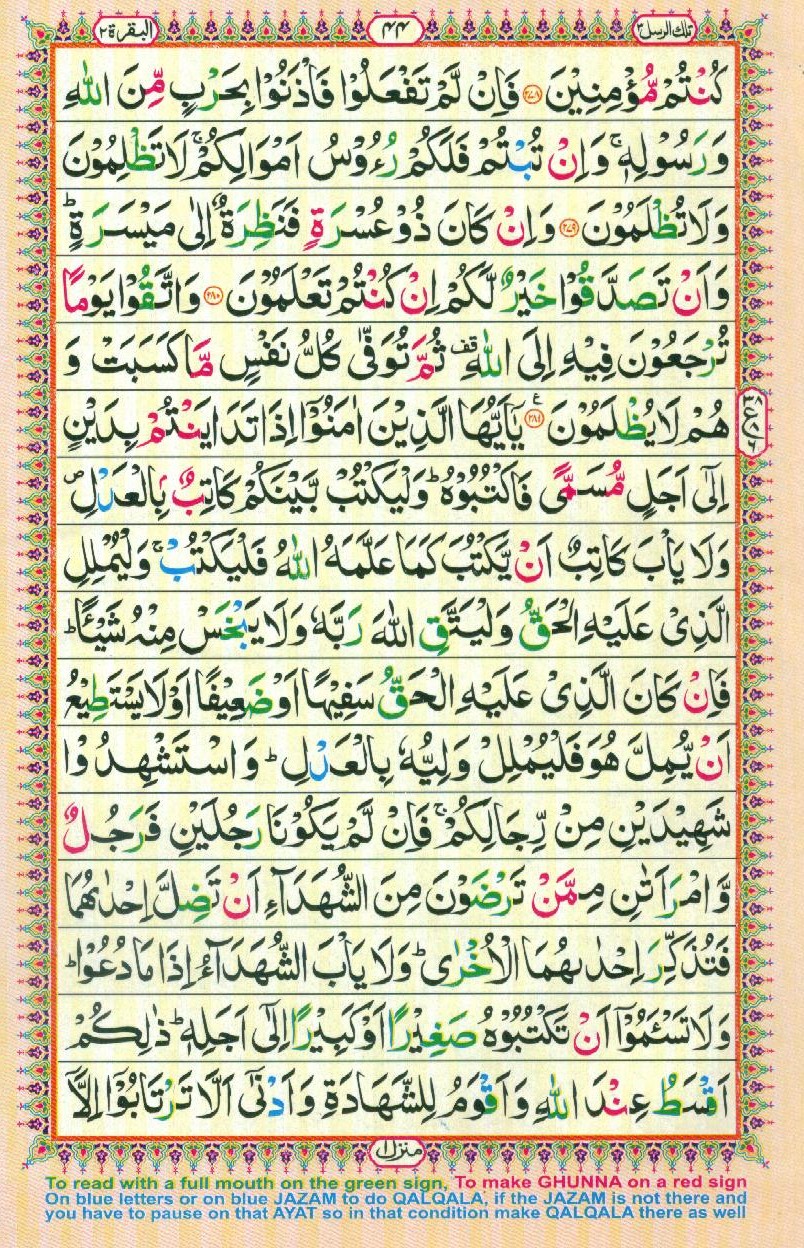 تلك الرسل ٣ ۴۴ البقرة ٢
كُنْتُمْ مُّؤْمِنِيْنَ ﴿۲۷۸﴾ فَاِنْ لَّمْ تَفْعَلُوْا فَاْذَنُوْا بِحَرْبٍ مِّنَ اللّٰهِ
وَرَسُوْلِهٖ ۚ وَاِنْ تُبْتُمْ فَلَكُمْ رُءُوْسُ اَمْوَالِكُمْ ۚ لَا تَظْلِمُوْنَ
وَلَا تُظْلَمُوْنَ ﴿۲۷۹﴾ وَاِنْ كَانَ ذُوْ عُسْرَةٍ فَنَظِرَةٌ اِلٰى مَيْسَرَةٍ ؕ
وَاَنْ تَصَدَّقُوْا خَيْرٌ لَّكُمْ اِنْ كُنْتُمْ تَعْلَمُوْنَ ﴿۲۸۰﴾ وَاتَّقُوْا يَوْمًا
تُرْجَعُوْنَ فِيْهِ اِلَى اللّٰهِ قف ثُمَّ تُوَفّٰى كُلُّ نَفْسٍ مَّا كَسَبَتْ وَ
هُمْ لَا يُظْلَمُوْنَ ﴿۲۸۱﴾ ع يٰۤاَيُّهَا الَّذِيْنَ اٰمَنُوْۤا اِذَا تَدَايَنْتُمْ بِدَيْنٍ
اِلٰۤى اَجَلٍ مُّسَمًّى فَاكْتُبُوْهُ ؕ وَلْيَكْتُبْ بَّيْنَكُمْ كَاتِبٌۢ بِالْعَدْلِ ۪
وَلَا يَاْبَ كَاتِبٌ اَنْ يَّكْتُبَ كَمَا عَلَّمَهُ اللّٰهُ فَلْيَكْتُبْ ۚ وَلْيُمْلِلِ
الَّذِيْ عَلَيْهِ الْحَقُّ وَلْيَتَّقِ اللّٰهَ رَبَّهٗ وَلَا يَبْخَسْ مِنْهُ شَيْـًٔا ؕ
فَاِنْ كَانَ الَّذِيْ عَلَيْهِ الْحَقُّ سَفِيْهًا اَوْ ضَعِيْفًا اَوْ لَا يَسْتَطِيْعُ
اَنْ يُّمِلَّ هُوَ فَلْيُمْلِلْ وَلِيُّهٗ بِالْعَدْلِ ؕ وَاسْتَشْهِدُوْا
شَهِيْدَيْنِ مِنْ رِّجَالِكُمْ ۚ فَاِنْ لَّمْ يَكُوْنَا رَجُلَيْنِ فَرَجُلٌ
وَّامْرَاَتٰنِ مِمَّنْ تَرْضَوْنَ مِنَ الشُّهَدَآءِ اَنْ تَضِلَّ اِحْدٰىهُمَا
فَتُذَكِّرَ اِحْدٰىهُمَا الْاُخْرٰى ؕ وَلَا يَاْبَ الشُّهَدَآءُ اِذَا مَا دُعُوْا ؕ
وَلَا تَسْـَٔمُوْۤا اَنْ تَكْتُبُوْهُ صَغِيْرًا اَوْ كَبِيْرًا اِلٰۤى اَجَلِهٖ ؕ ذٰلِكُمْ
اَقْسَطُ عِنْدَ اللّٰهِ وَاَقْوَمُ لِلشَّهَادَةِ وَاَدْنٰۤى اَلَّا تَرْتَابُوْۤا اِلَّاۤ
منزل ١
To read with a full mouth on the green sign, To make GHUNNA on a red sign
On blue letters or on blue JAZAM to do QALQALA, if the JAZAM is not there and
you have to pause on that AYAT so in that condition make QALQALA there as well